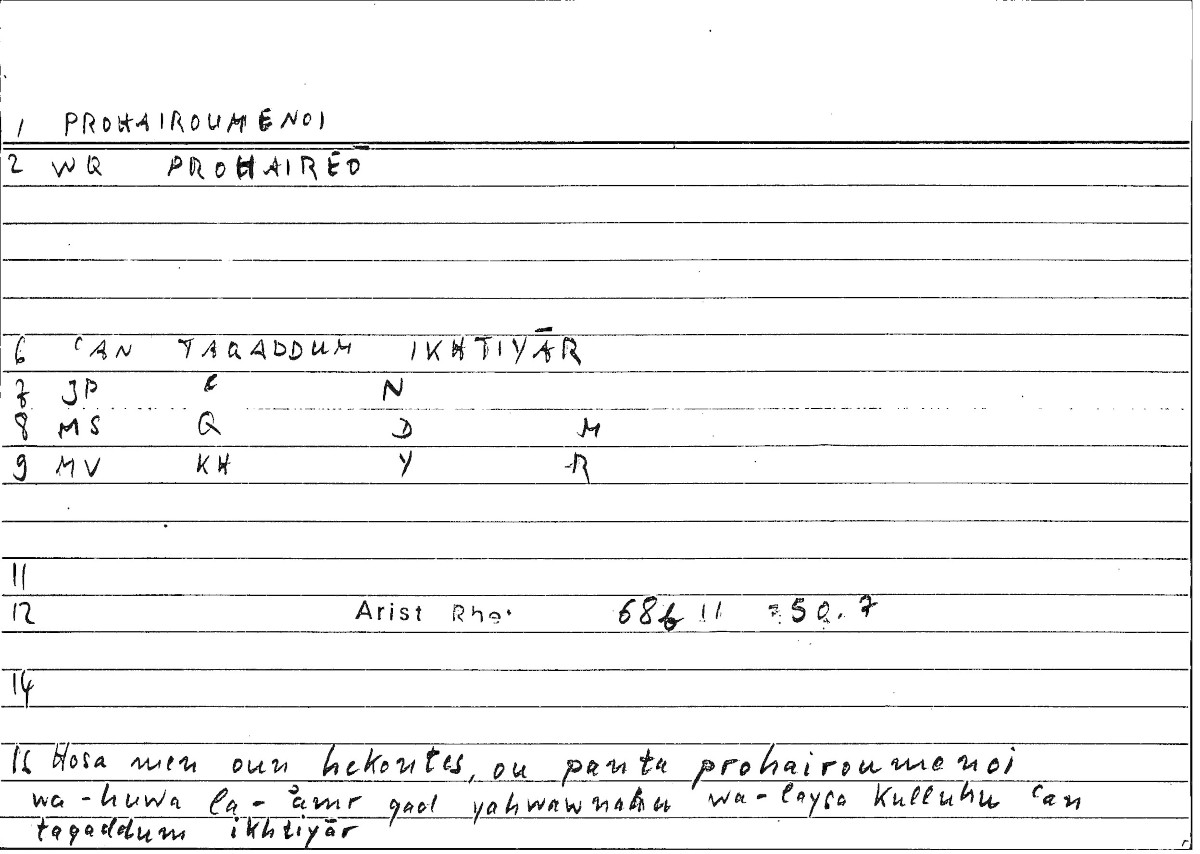 1 PROHAIROUMENOI
2 WQ PROHAIRĒŌ
6 ʿAN TAQADDUM IKHTIYĀR
7 JP ʿ N
8 MS Q D M
9 MV KH Y R
11
12 Arist Rhe. 68b 11 50.7
14
15 Hosa men oun hekontes, ou panta prohairoumenoi
wa-huwa la- qad yahwawnahu wa-laysa kulluhu ʿan
taqaddum ikhtiyār